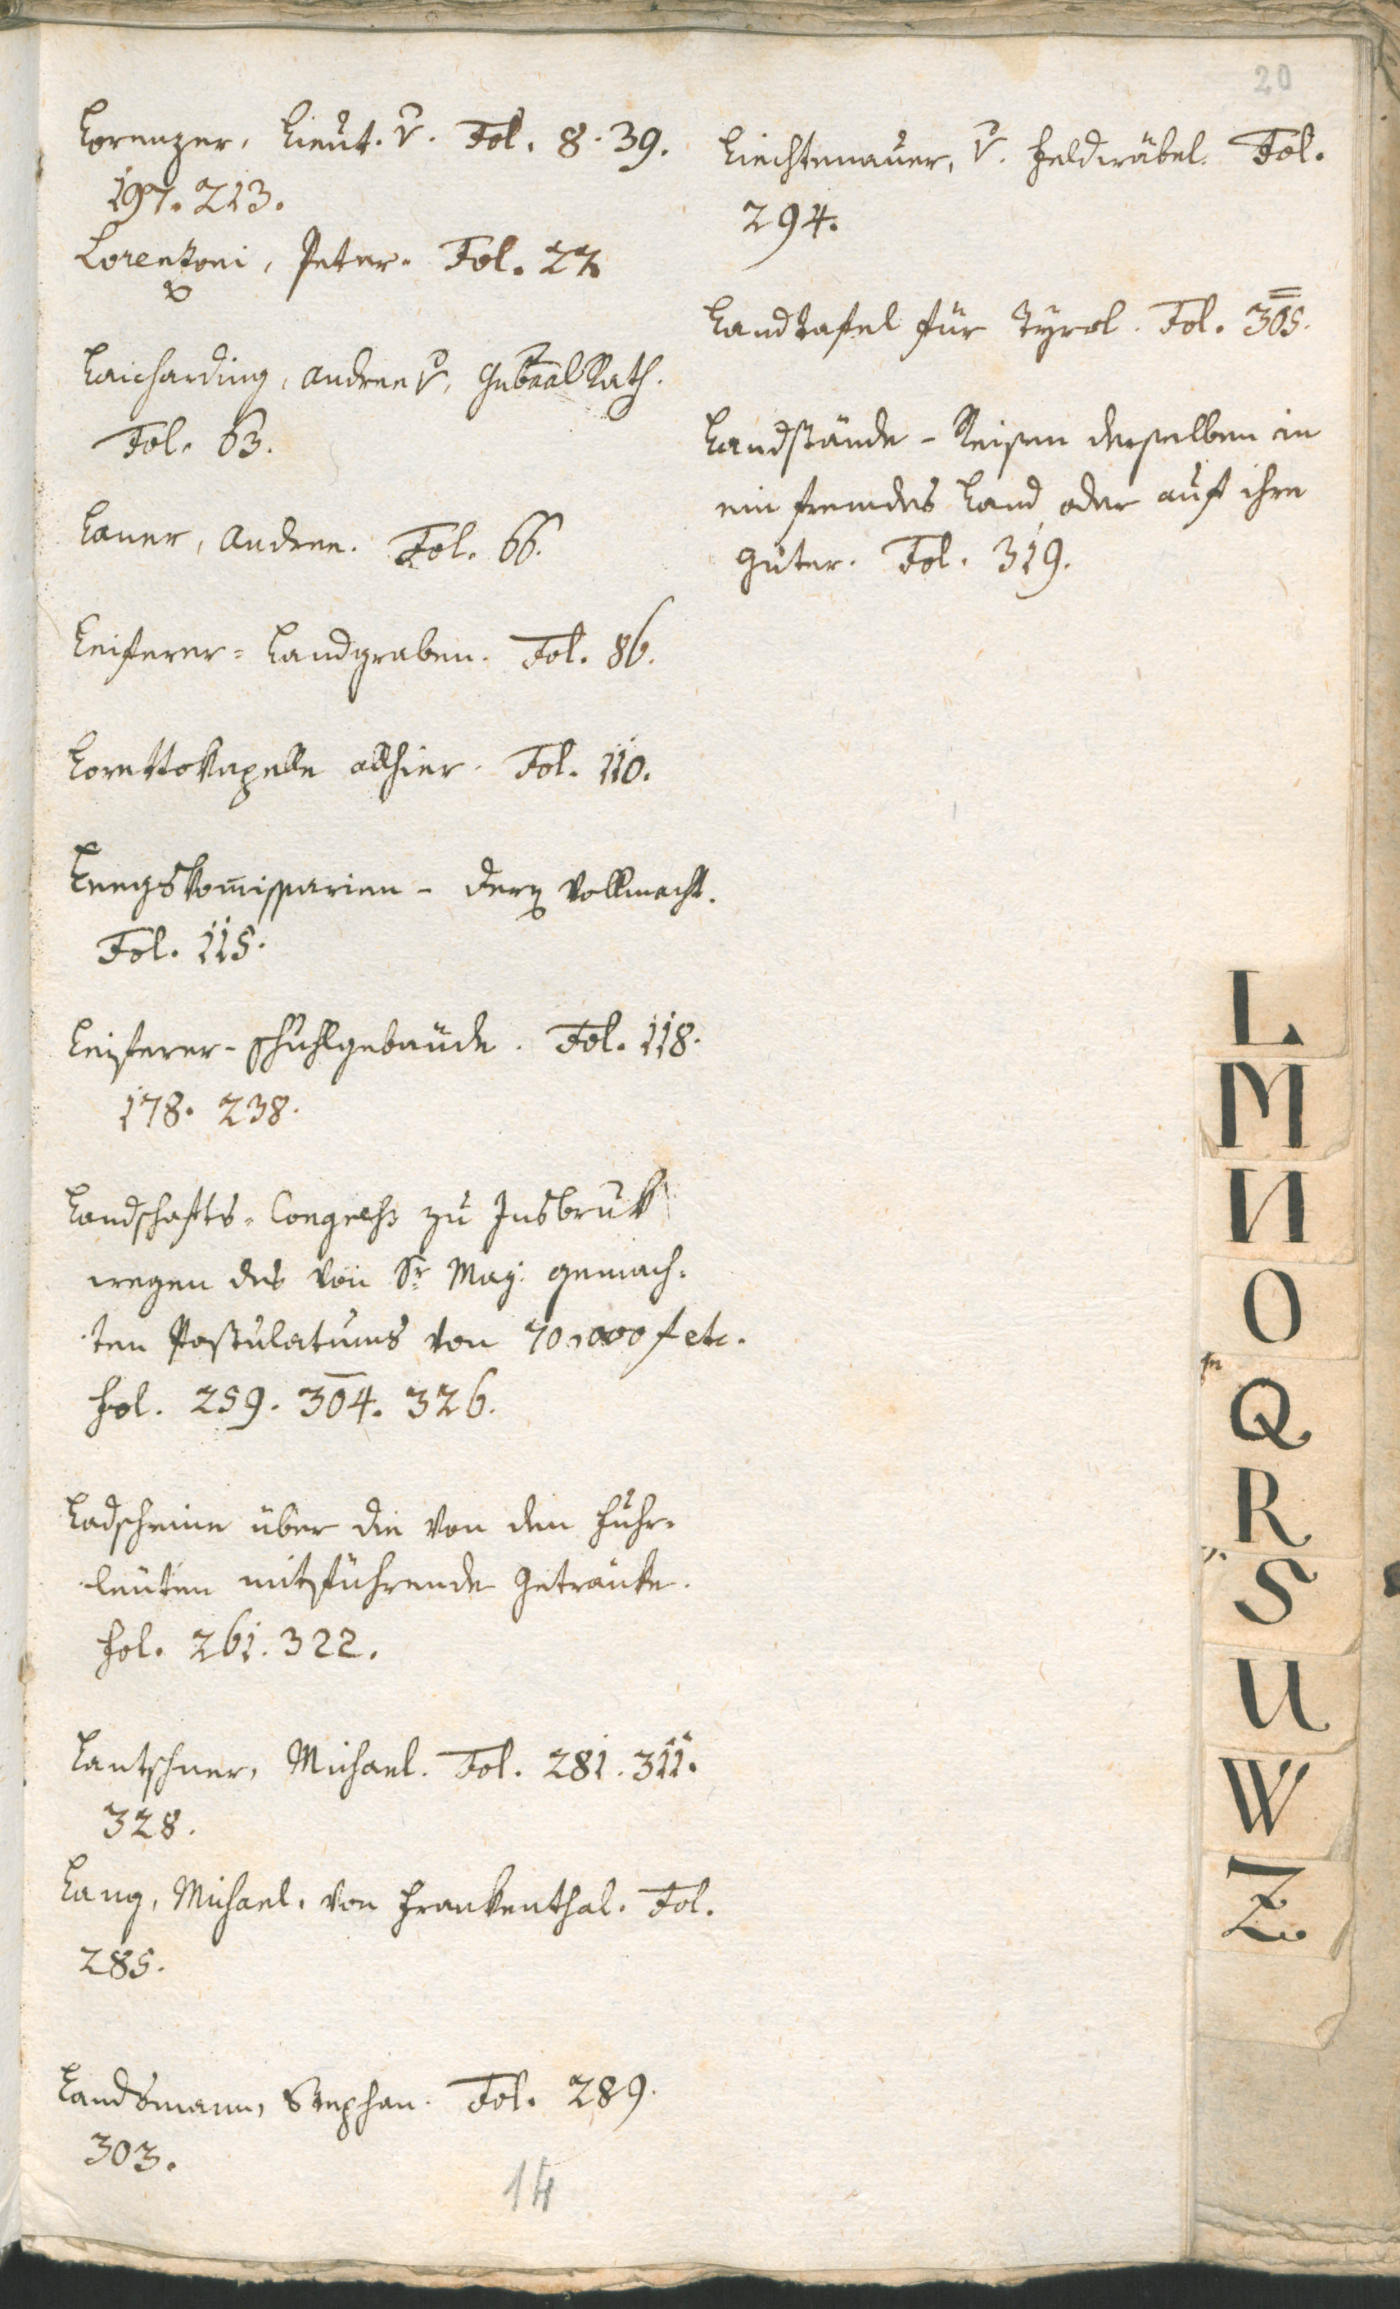 20
Lorenzer, Lieut. v. Fol. 8. 39.
197. 213.
Lorenzoni, Peter. Fol. 22
Laicharding, Andree v, Gubnal Rath.
Fol. 63.
Lauer, Andree. Fol. 66.
Leiferer-Landgraben. Fol. 86.
Lorettokapelle allhier. Fol. 110.
Leegskommissarien - Vollmacht.
Fol. 115.
Leiferer-Schuhlgebäude. Fol. 118.
178. 238.
Landschafts-Congreß zu Insbruk
wegen des von Sr Maj: gemach-
ten Postulatums von 70,000 f etc.
Fol. 259. 304. 326.
Ladscheine über die von den Fuhr-
leuten mitführende Getränke.
Fol. 261. 322.
Lantschner, Michael. Fol. 281. 311.
328.
Lang, Michael. von Frankenthal. Fol.
285.
Landsmann, Stephan. Fol. 289.
303.
14
Liechtenauer, v. Feldwäbel. Fol.
294.
Landtafel für Tyrol. Fol. 305.
Landstände - Reisen derselben in
ein fremdes Land oder auf ihre
Güter. Fol. 319.
L
M
N
O
Q
R
S
U
W
Z